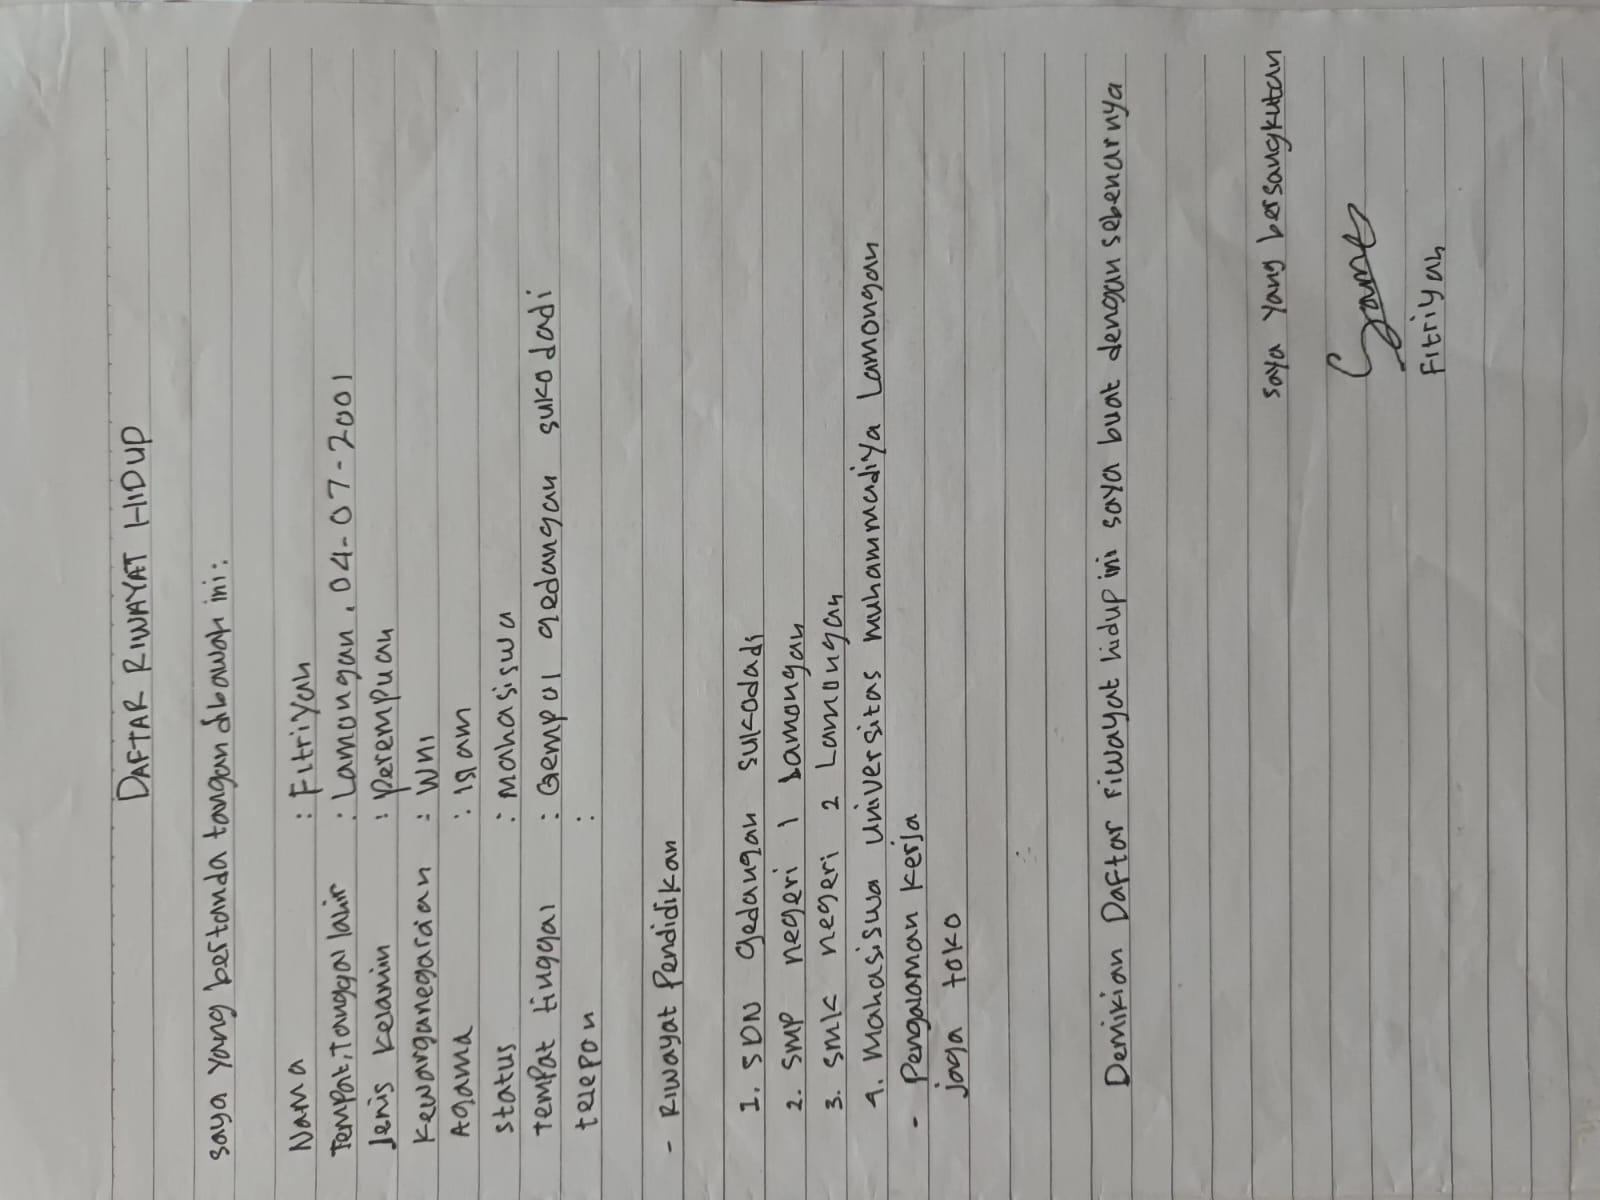 DAFTAR RIWAYAT HIDUP
saya yang bertanda tangan dibawah ini:
Nama : Fitriyah
Tempat, Tanggal lahir : Lamongan, 04-07-2001
Jenis kelamin : perempuan
Kewarganegaraan : WNI
Agama : Islam
Status : Mahasiswa
Tempat tinggal : Gempol gedangan sukodadi
telepon :
- Riwayat Pendidikan
1. SDN gedangan sukodadi
2. SMP negeri 1 Lamongan
3. SMK negeri 2 Lamongan
4. Mahasiswa Universitas muhammadiya Lamongan
- Pengalaman Kerja
jaga toko
Demikian Daftar riwayat hidup ini saya buat dengan sebenarnya
saya yang bersangkutan
Fitriyah